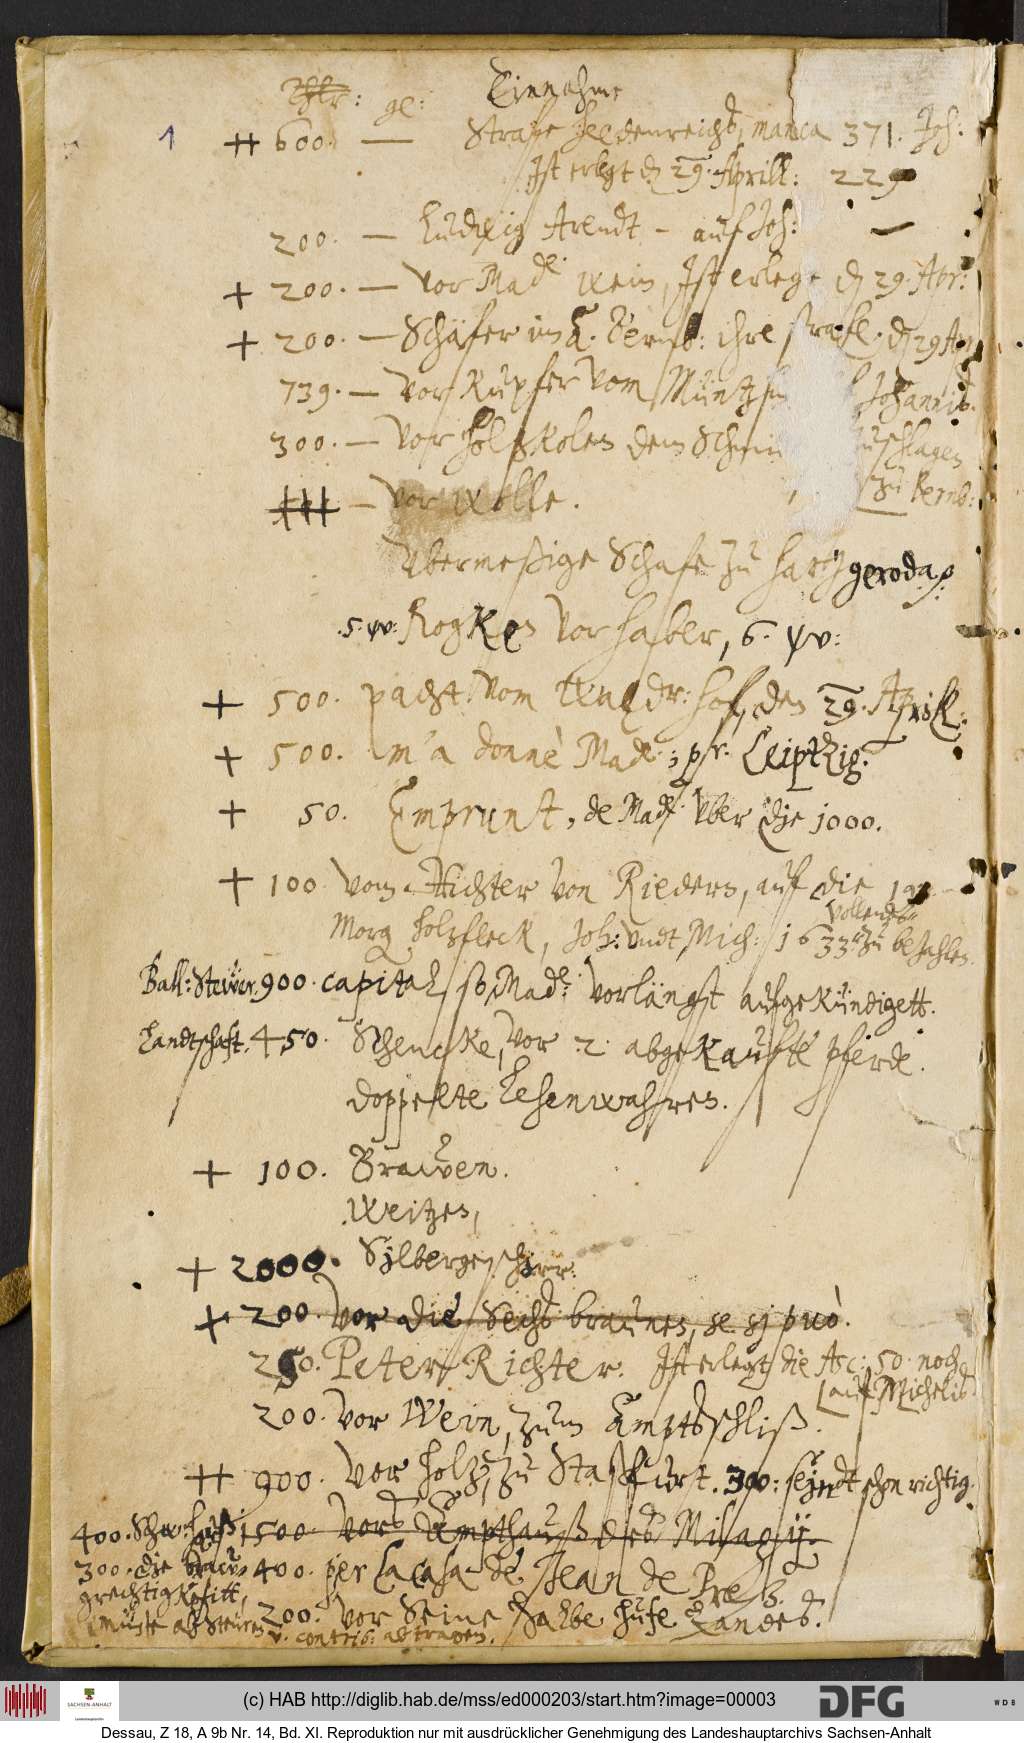 Thlr: gl: Einnahme
1 ++ 600. — Strafe Heedenreichs, manca 371. Joh:
Ist erlegt d 29. Aprill: 229
200. — Ludwig Arendt - auf Joh: —
+ 200. — Vor Mad. wein, Ist erlegt d 29. Apr:
+ 200. — Schäfer im A. Bernb: ihre strafe. d 29 Apr
739. — Vor Kupfer Vom Müntz Johannis.
300. — Vor Holtzkolen dem zuschlagen
zu Bernb:
— Vor Wolle.
Vbermeßige Schafe zu Hartzgeroda
5. Rogken Vor Haber, 6.
+ 500. pacht Vom hof, den 29. Aprill:
+ 500. m'a donnè Mad: pr. Leiptzig.
+ 50. Emprunt, de Mad. Vber die 1000.
+ 100. Vom Richter Von Rieders, auf die
Vollends
Morg holzfleck, Joh: Vndt Mich: 1633 zu bezahlen.
Ball: Steuer. 900. capital so Mad: Vorlängst aufgekündigett.
Landtschaft. 450. Schencke, Vor 2 abgekaufte pferde.
doppelte Lehenwahren.
+ 100. Brauen.
Weitzen,
+ 2000. Sylbergeschirr:
+ 200. Vor die Sechs braunen, se sj può.
250. Peter Richter. Ist erlegt die Asc: 50. noch
auf Michelis
200. Vor Wein, zum Amptsschliß.
++ 900. Vor holtz, zu Staßfurt. 300: sejndt schon richtig.
400. 1500. Vors Ampthauß des Milagij.
300. die 400. per la casa de Jean de Pre
grechtigkeitt,
müste ab Steuren 200. Vor Seine halbe hufe Landes.
v. contrib: abtragen.
(c) HAB http://diglib.hab.de/mss/ed000203/start.htm?image=00003
SACHSEN-ANHALT
DFG
WDB
Dessau, Z 18, A 9b Nr. 14, Bd. XI. Reproduktion nur mit ausdrücklicher Genehmigung des Landeshauptarchivs Sachsen-Anhalt